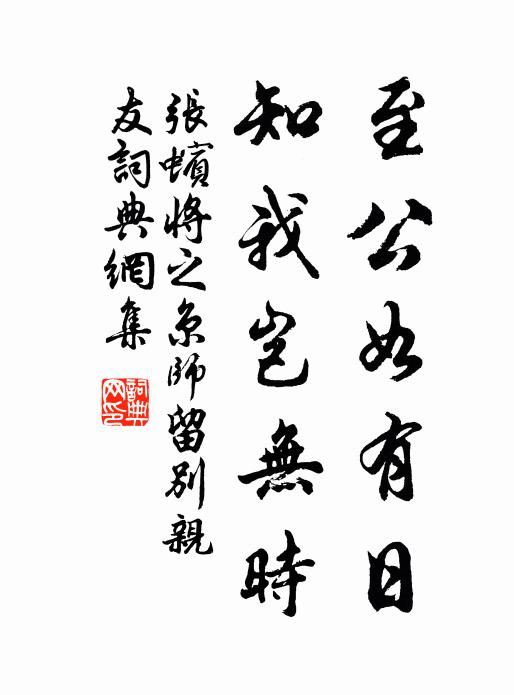 至公如有日
知我豈無時
張蠙將之京師留別親
友詞典網集
詞典
网印